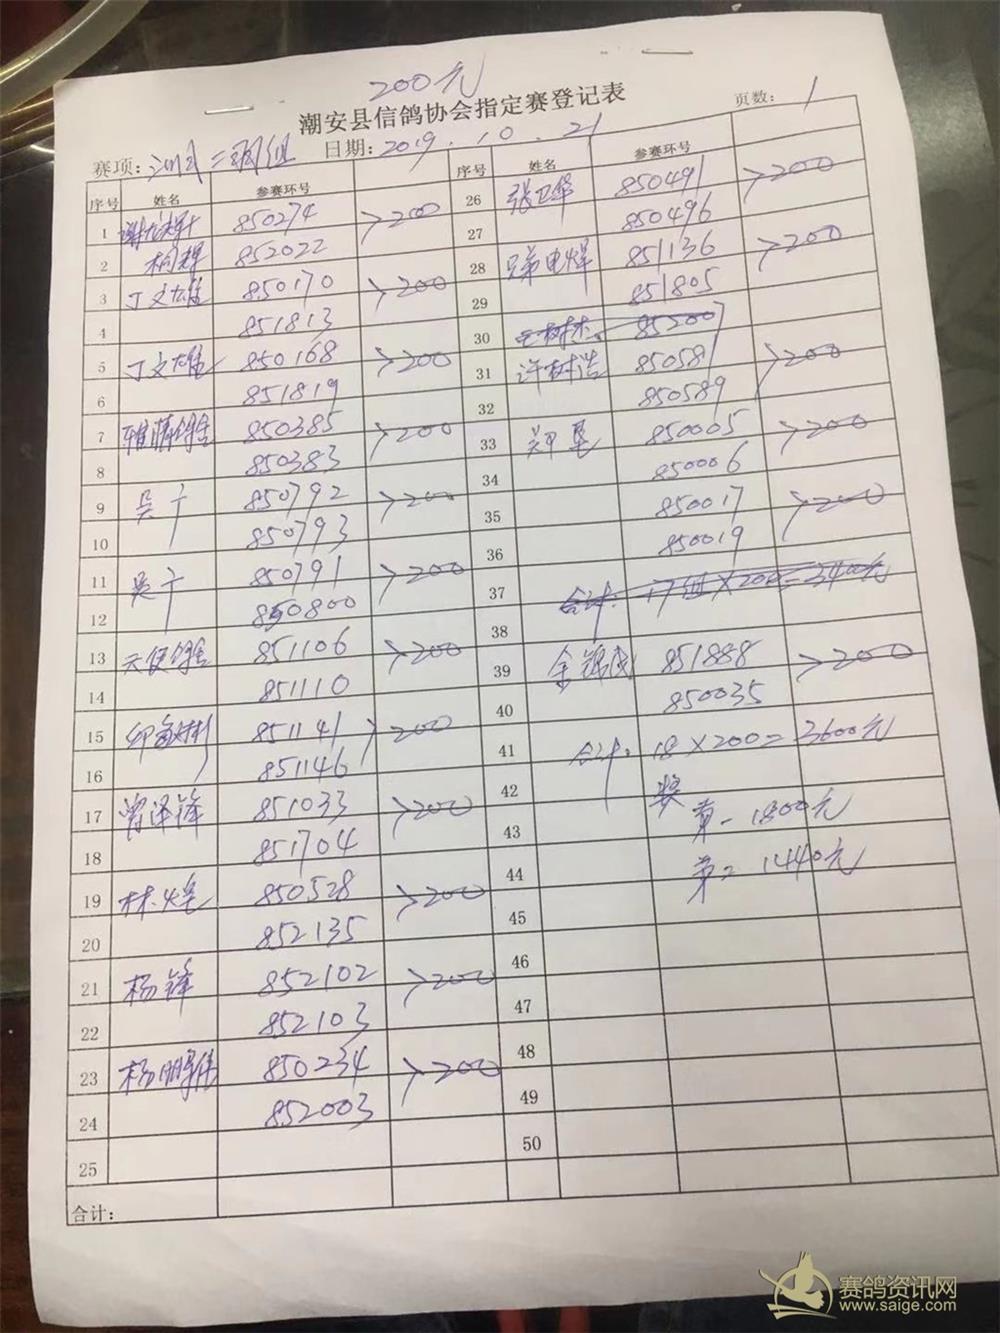 200元
潮安县信鸽协会指定赛登记表
赛项: 二羽组 日期: 2019.10.21 页数: 1
序号 姓名 参赛环号
1 850274 >200
2 852022
3 丁文雄 850170 >200
4 851813
5 丁文雄 850168 >200
6 851819
7 雅清鸽舍 850385 >200
8 850383
9 吴宁 850792 >200
10 850793
11 吴宁 850791 >200
12 850800
13 天使鸽舍 851106 >200
14 851110
15 851141 >200
16 851146
17 曾泽锋 851033 >200
18 851704
19 林煌 850528 >200
20 852135
21 杨锋 852102 >200
22 852103
23 杨鹏伟 850234 >200
24 852003
25
合计:
序号 姓名 参赛环号
26 张卫华 850491 >200
27 850496
28 兄弟电焊 851136 >200
29 851805
30 85200
31 许树浩 850581 >200
32 850589
33 郑垦 850005 >200
34 850006
35 850017 >200
36 850019
37 合计: 17组×200=3400元
38
39 余锦茂 851888 >200
40 850035
41 合计: 18×200=3600元
42 奖
43 第一 1800元
44 第二 1440元
45
46
47
48
49
50
赛鸽资讯网
www.saige.com